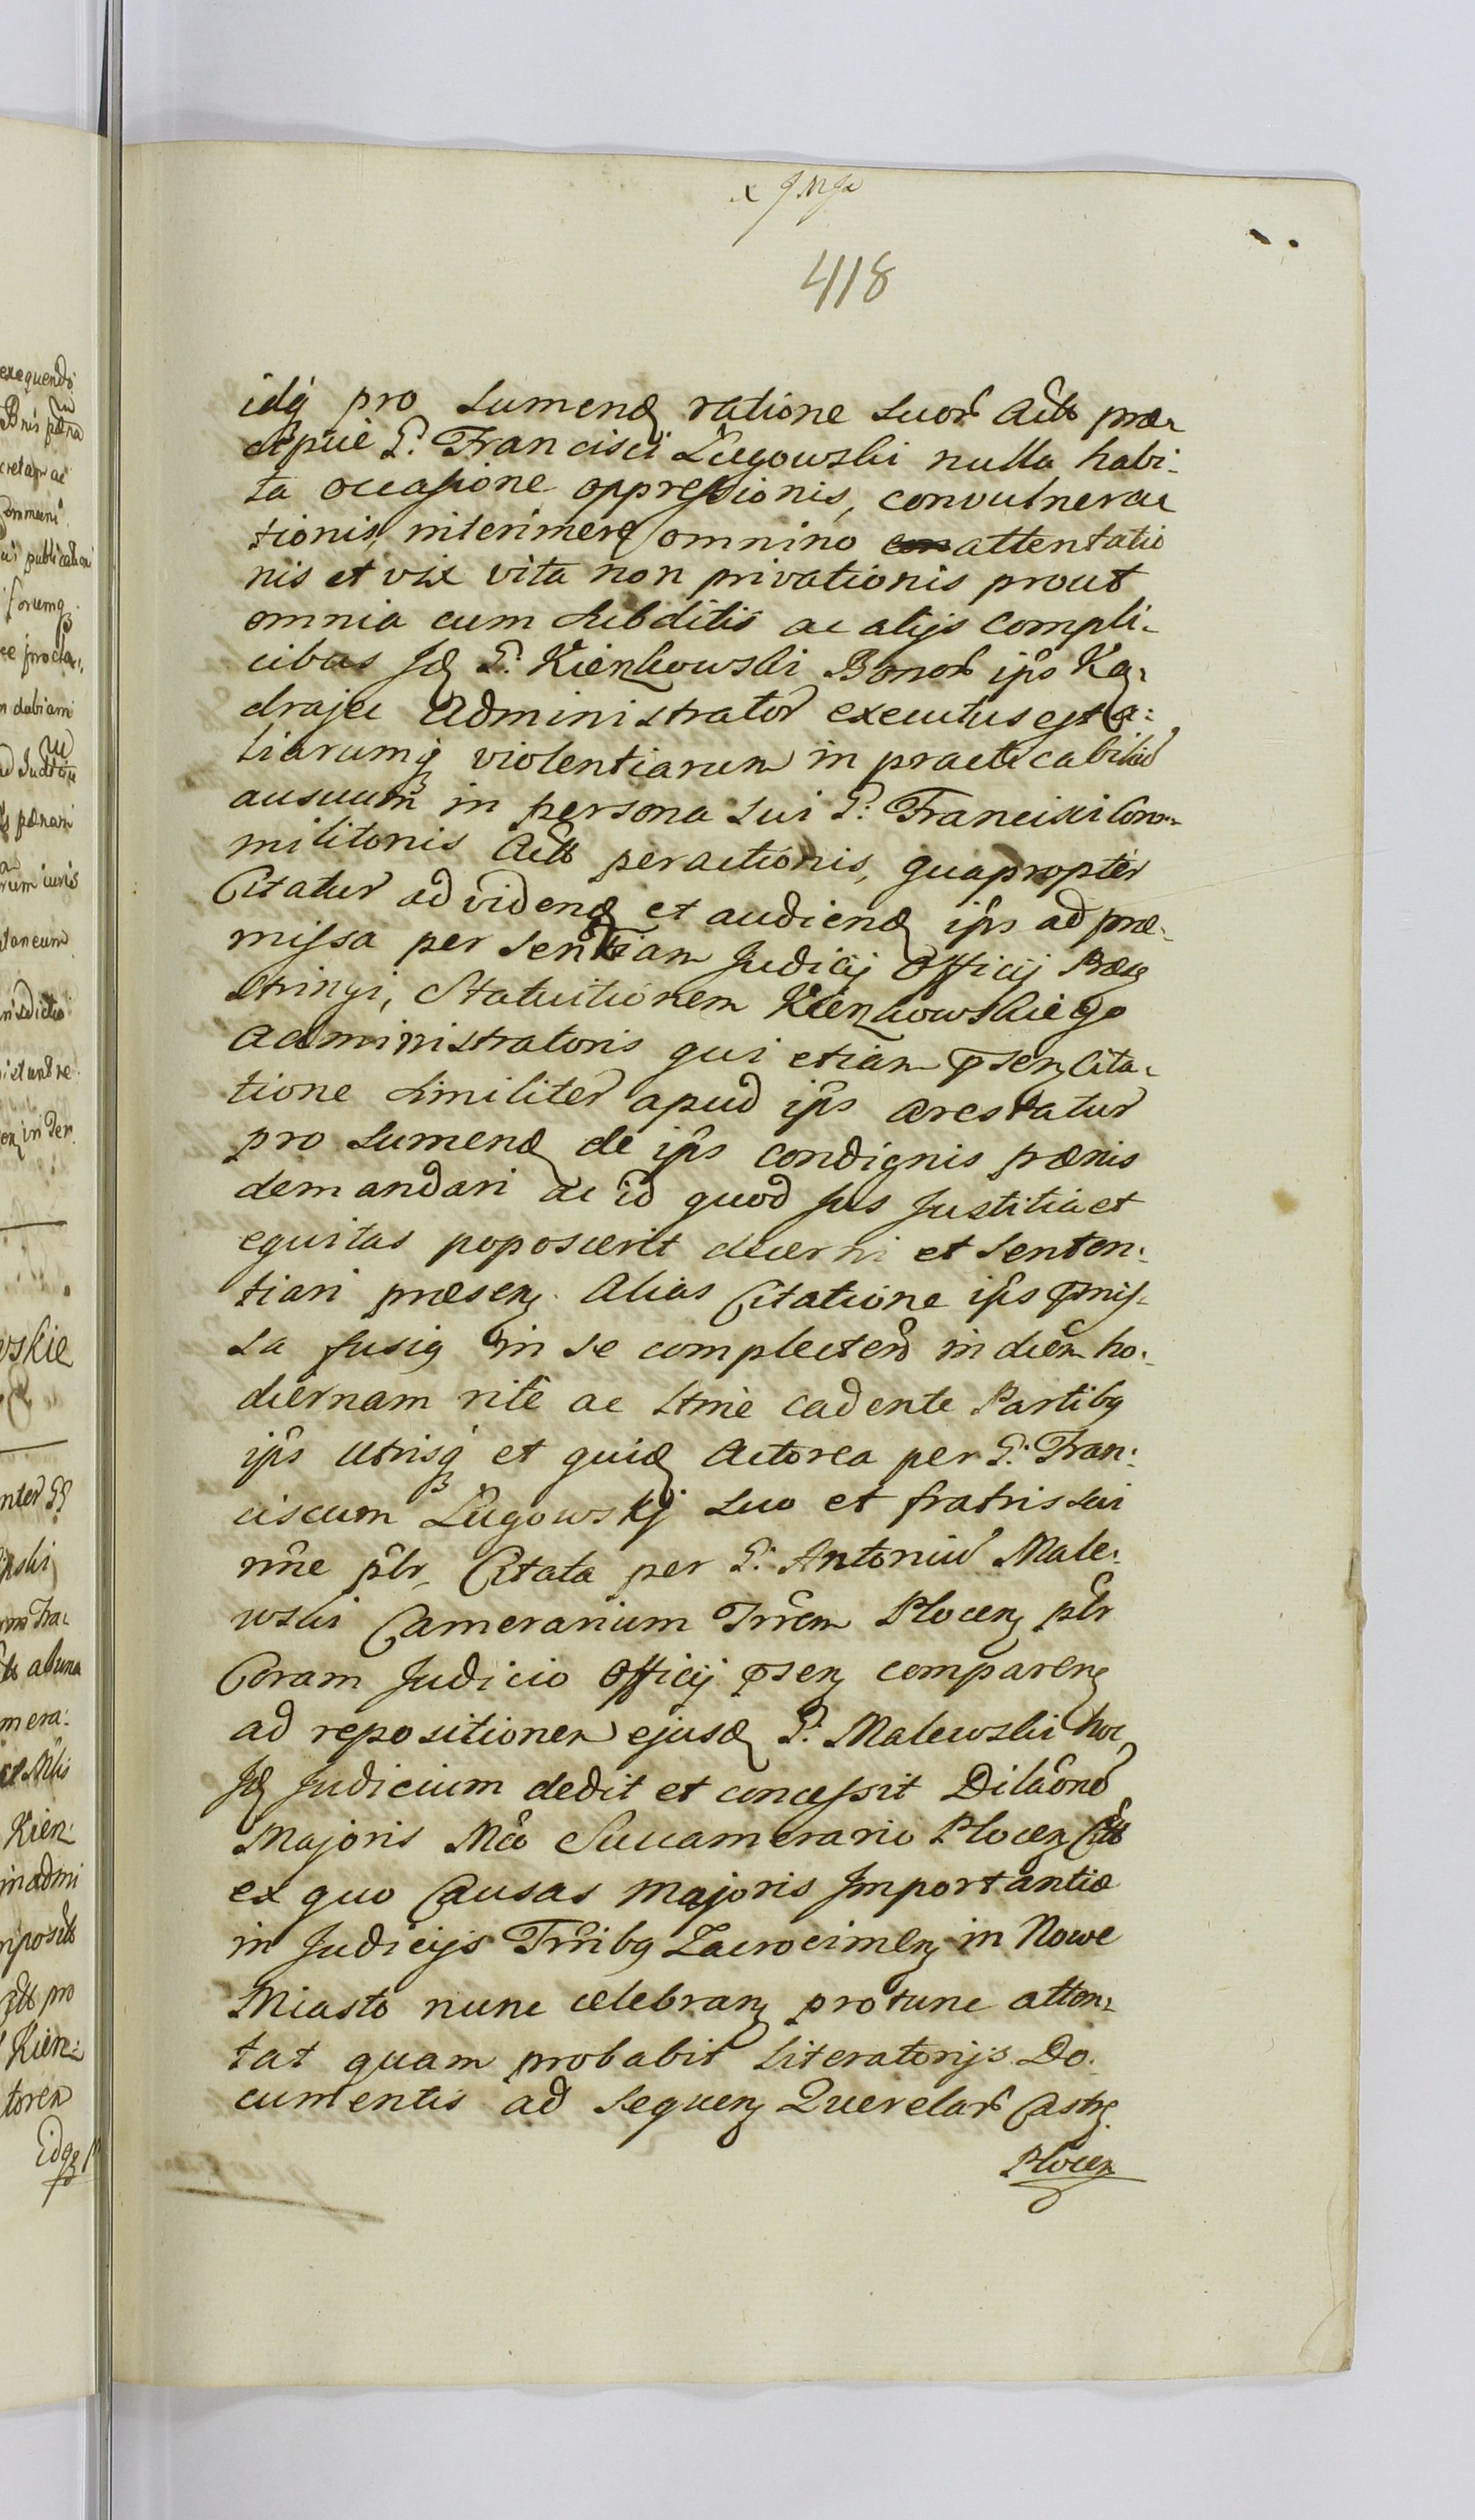 418
idq pro sumend ratione suor Actt præ-
cipuè G. Francisci Ługowski nulla habi-
ta occasione oppressionis, convulnera-
tionis, interimere omnino attentatio
nis et vix vita non privationis prout
omnia cum subditis ac alijs compli-
cibus Jd G. Kienkowski Bonor ips
Administrator executus est a-
liarumq violentiarum in practicabiliu
ausuum in persona sui G. Francisci Com-
militonis Actt peractionis, quapropter
Citatur ad videnđ et audienđ ips ad præ-
missa per Sententiam Judicij Officij Præs
stringi, Statuitionem Kienkowskiego
administratoris qui etiam psen Cita-
tione similiter apud ips arestatur
pro sumend de ips condignis pænis
demandari ac id quod Jus Justitia et
equitas poposcerit decerni et Senten-
tiari præsen. Alias Citatione ips pmis-
sa fusiq in se complecten in diem ho-
diernam ritè ac ltmè cadente Partibq
ips utrisq et quid Actorea per G. Fran-
ciscum Ługowskij suo et fratris sui
nne pbr, Citata per G. Antoniu Male-
wski Camerarium Trrem Plocen pbr
Coram Judicio Officij psen comparen
ad repositionem ejusd G. Malewski hoc
Jd Judicium dedit et concessit Dilãone
Majoris Mco Succamerario Plocen
ex quo Causas majoris Importantiæ
in Judicijs Trribq Zacrocimen in Nowe
Miasto nunc celebran protunc atten-
tat quam probabit Literatorijs Do-
cumentis ad sequen Querelar Castr
Plocen